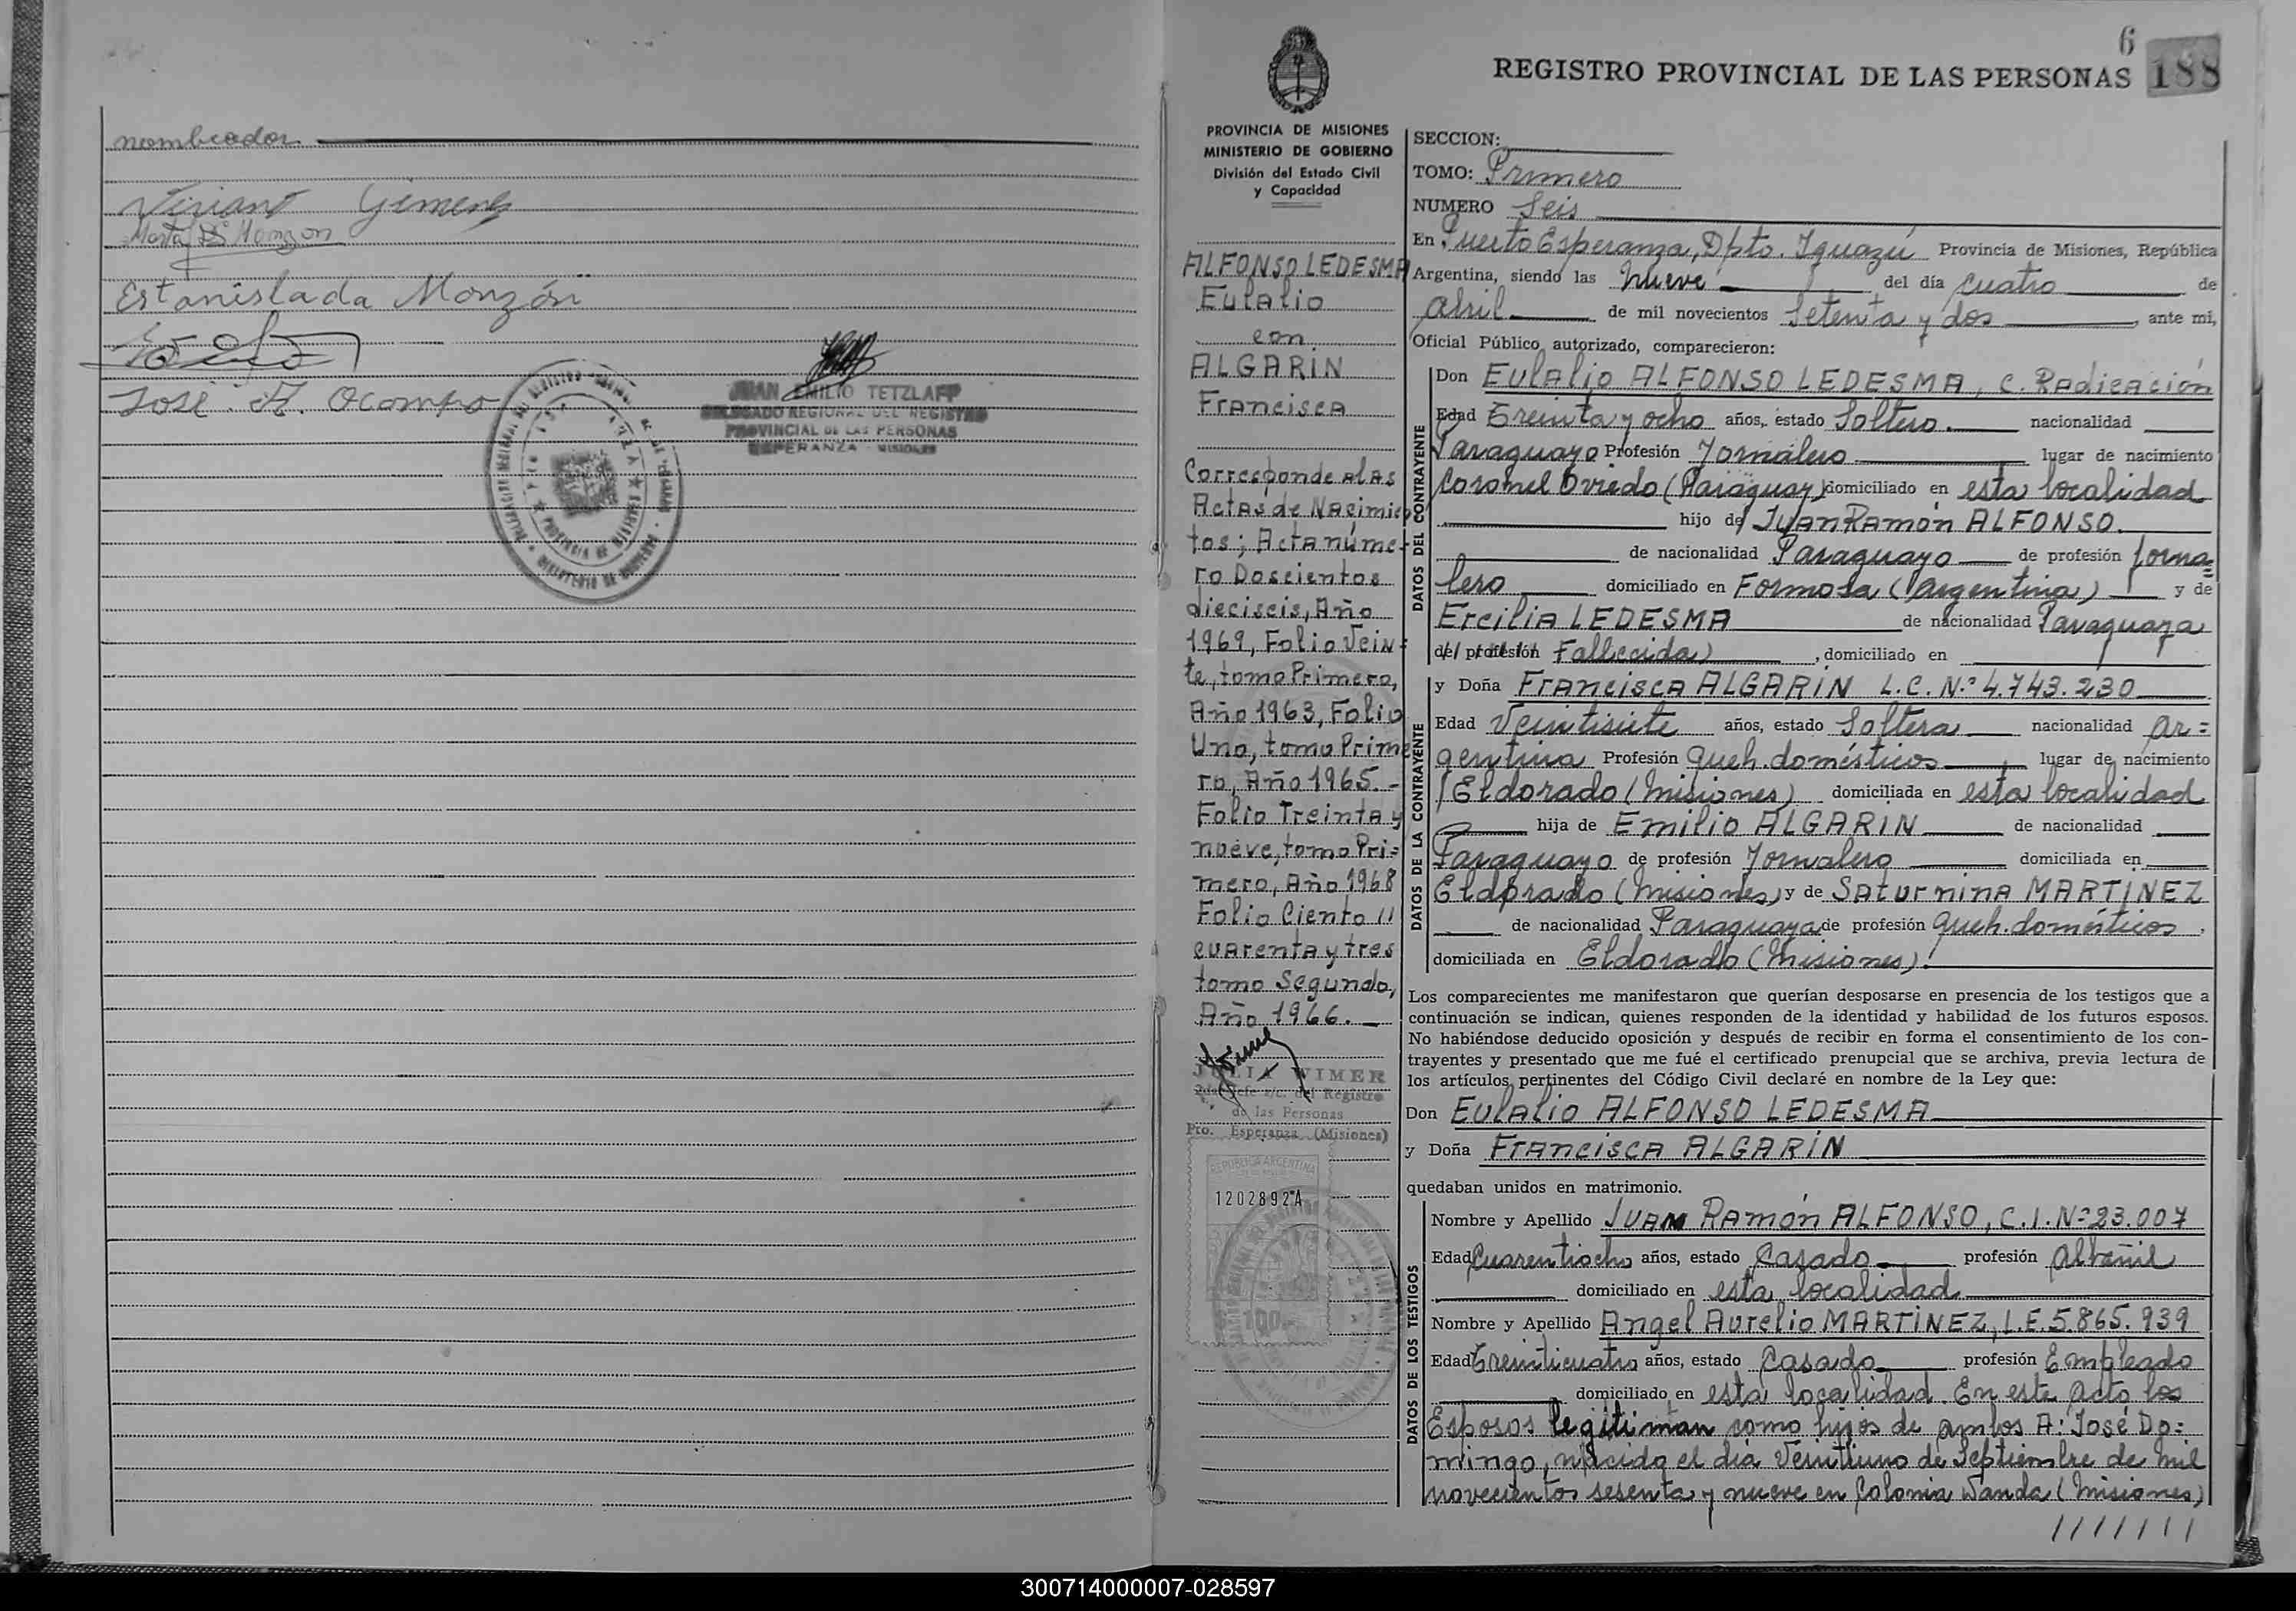 nombrador
Gimenez
Marta Monzon
Estanislada Monzón
José A. Ocampo
JUAN EMILIO TETZLAFF
DELEGADO REGIONAL DEL REGISTRO
PROVINCIAL DE LAS PERSONAS
ESPERANZA - MISIONES
6
REGISTRO PROVINCIAL DE LAS PERSONAS 188
PROVINCIA DE MISIONES
MINISTERIO DE GOBIERNO
División del Estado Civil
y Capacidad
ALFONSO LEDESMA
Eulalio
con
ALGARIN
Francisca
Corresponde a las
Actas de Nacimien
tos; Acta núme-
ro Doscientos
dieciseis, Año
1969, Folio Vein=
te, tomo Primero,
Año 1963, Folio
Uno, tomo Prime
ro, Año 1965.-
Folio Treinta y
nueve, tomo Pri=
mero, Año 1968
Folio Ciento //
cuarenta y tres
tomo Segundo,
Año 1966. —
JULIA WIMER
2da. Jefe e/c. del Registro
de las Personas
Pto. Esperanza (Misiones)
REPUBLICA ARGENTINA
1202892A
100
SECCION:
TOMO: Primero
NUMERO Seis
En Puerto Esperanza, Dpto. Iguazú Provincia de Misiones, República
Argentina, siendo las Nueve del día cuatro de
abril de mil novecientos Setenta y dos, ante mi,
Oficial Público autorizado, comparecieron:
DATOS DEL CONTRAYENTE
Don Eulalio ALFONSO LEDESMA, C. Radicación
Edad Treinta y ocho años, estado Soltero. nacionalidad
Paraguayo Profesión Jornalero lugar de nacimiento
Coronel Oviedo (Paraguay) domiciliado en esta localidad
hijo de Juan Ramón ALFONSO.
de nacionalidad Paraguayo de profesión Jorna=
lero domiciliado en Formosa (Argentina) y de
Ercilia LEDESMA de nacionalidad Paraguaya
de profesión Fallecida) , domiciliado en
DATOS DE LA CONTRAYENTE
y Doña Francisca ALGARIN L.C. N.º 4.743.230
Edad Veintisiete años, estado Soltera nacionalidad Ar=
gentina Profesión Queh. domésticos lugar de nacimiento
Eldorado (Misiones) domiciliada en esta localidad
hija de Emilio ALGARIN de nacionalidad
Paraguayo de profesión Jornalero domiciliada en
Eldorado (Misiones) y de Saturnina MARTINEZ
de nacionalidad Paraguaya de profesión Queh. domésticos,
domiciliada en Eldorado (Misiones).
Los comparecientes me manifestaron que querían desposarse en presencia de los testigos que a
continuación se indican, quienes responden de la identidad y habilidad de los futuros esposos.
No habiéndose deducido oposición y después de recibir en forma el consentimiento de los con-
trayentes y presentado que me fué el certificado prenupcial que se archiva, previa lectura de
los artículos pertinentes del Código Civil declaré en nombre de la Ley que:
Don Eulalio ALFONSO LEDESMA
y Doña Francisca ALGARIN
quedaban unidos en matrimonio.
DATOS DE LOS TESTIGOS
Nombre y Apellido Juan Ramón ALFONSO, C.I. Nº 23.007
Edad Cuarentiocho años, estado Casado profesión Albañil
domiciliado en esta localidad
Nombre y Apellido Angel Aurelio MARTINEZ, L.E. 5.865.939
Edad Treinticuatro años, estado Casado profesión Empleado
domiciliado en esta localidad. En este acto los
Esposos legitiman como hijos de ambos A: José Do=
mingo, nacido el día Veintiuno de Septiembre de mil
novecientos sesenta y nueve en Colonia Wanda (Misiones)
///////
300714000007-028597